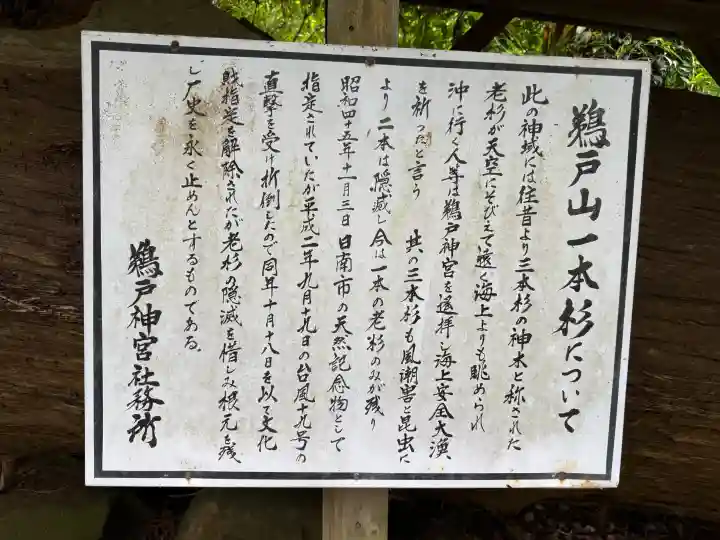 鵜戸山一本杉について
此の神域には往昔より三本杉の神木と称された
老杉が天空にそびえて遠く海上よりも眺められ
沖に行く人等は鵜戸神宮を遥拝し海上安全大漁
を祈ったと言う　其の三本杉も風潮害と昆虫に
より二本は隠滅し今は一本の老杉のみが残り
昭和四十五年十一月三日日南市の天然記念物として
指定されていたが平成二年九月十九日の台風十九号の
直撃を受け折倒したので同年十月十八日を以て文化
財指定を解除されたが老杉の隠滅を惜しみ根元を残
し歴史を永く止めんとするものである。
鵜戸神宮社務所